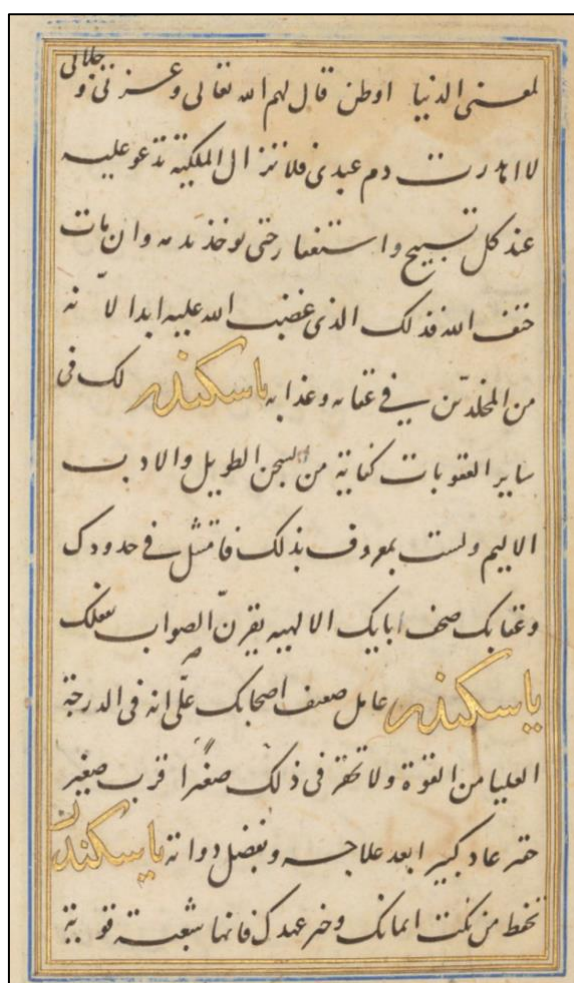 لمعنى الدنيا اوطن قال لهم الله تعالى وعزتى وجلالى
لا اهدرت دم عبدى فلا تزال الملئكة تدعو عليه
عند كل تسبيح واستغفار حتى يوخذ بدمه وان مات
حتف الله فذلك الذى غضب الله عليه ابدا لانه
من المخلدين فى عقابه وعذابه ياسكندر لك فى
ساير العقوبات كفاية من السجن الطويل والادب
الاليم ولست بمعروف بذلك فامتثل فى حدودك
وعقابك صحف ابايك الالهيه يقرن الصواب بفعلك
ياسكندر عامل ضعيف اصحابك على انه فى الدرجة
العليا من القوة ولا تحقر فى ذلك صغيرا فرب صغير
حقير عاد كبيرا بعد علاجه ويعضل دوائه ياسكندر
تحفظ من نكث ايمانك وخفر عهدك فانها شعبة قوية